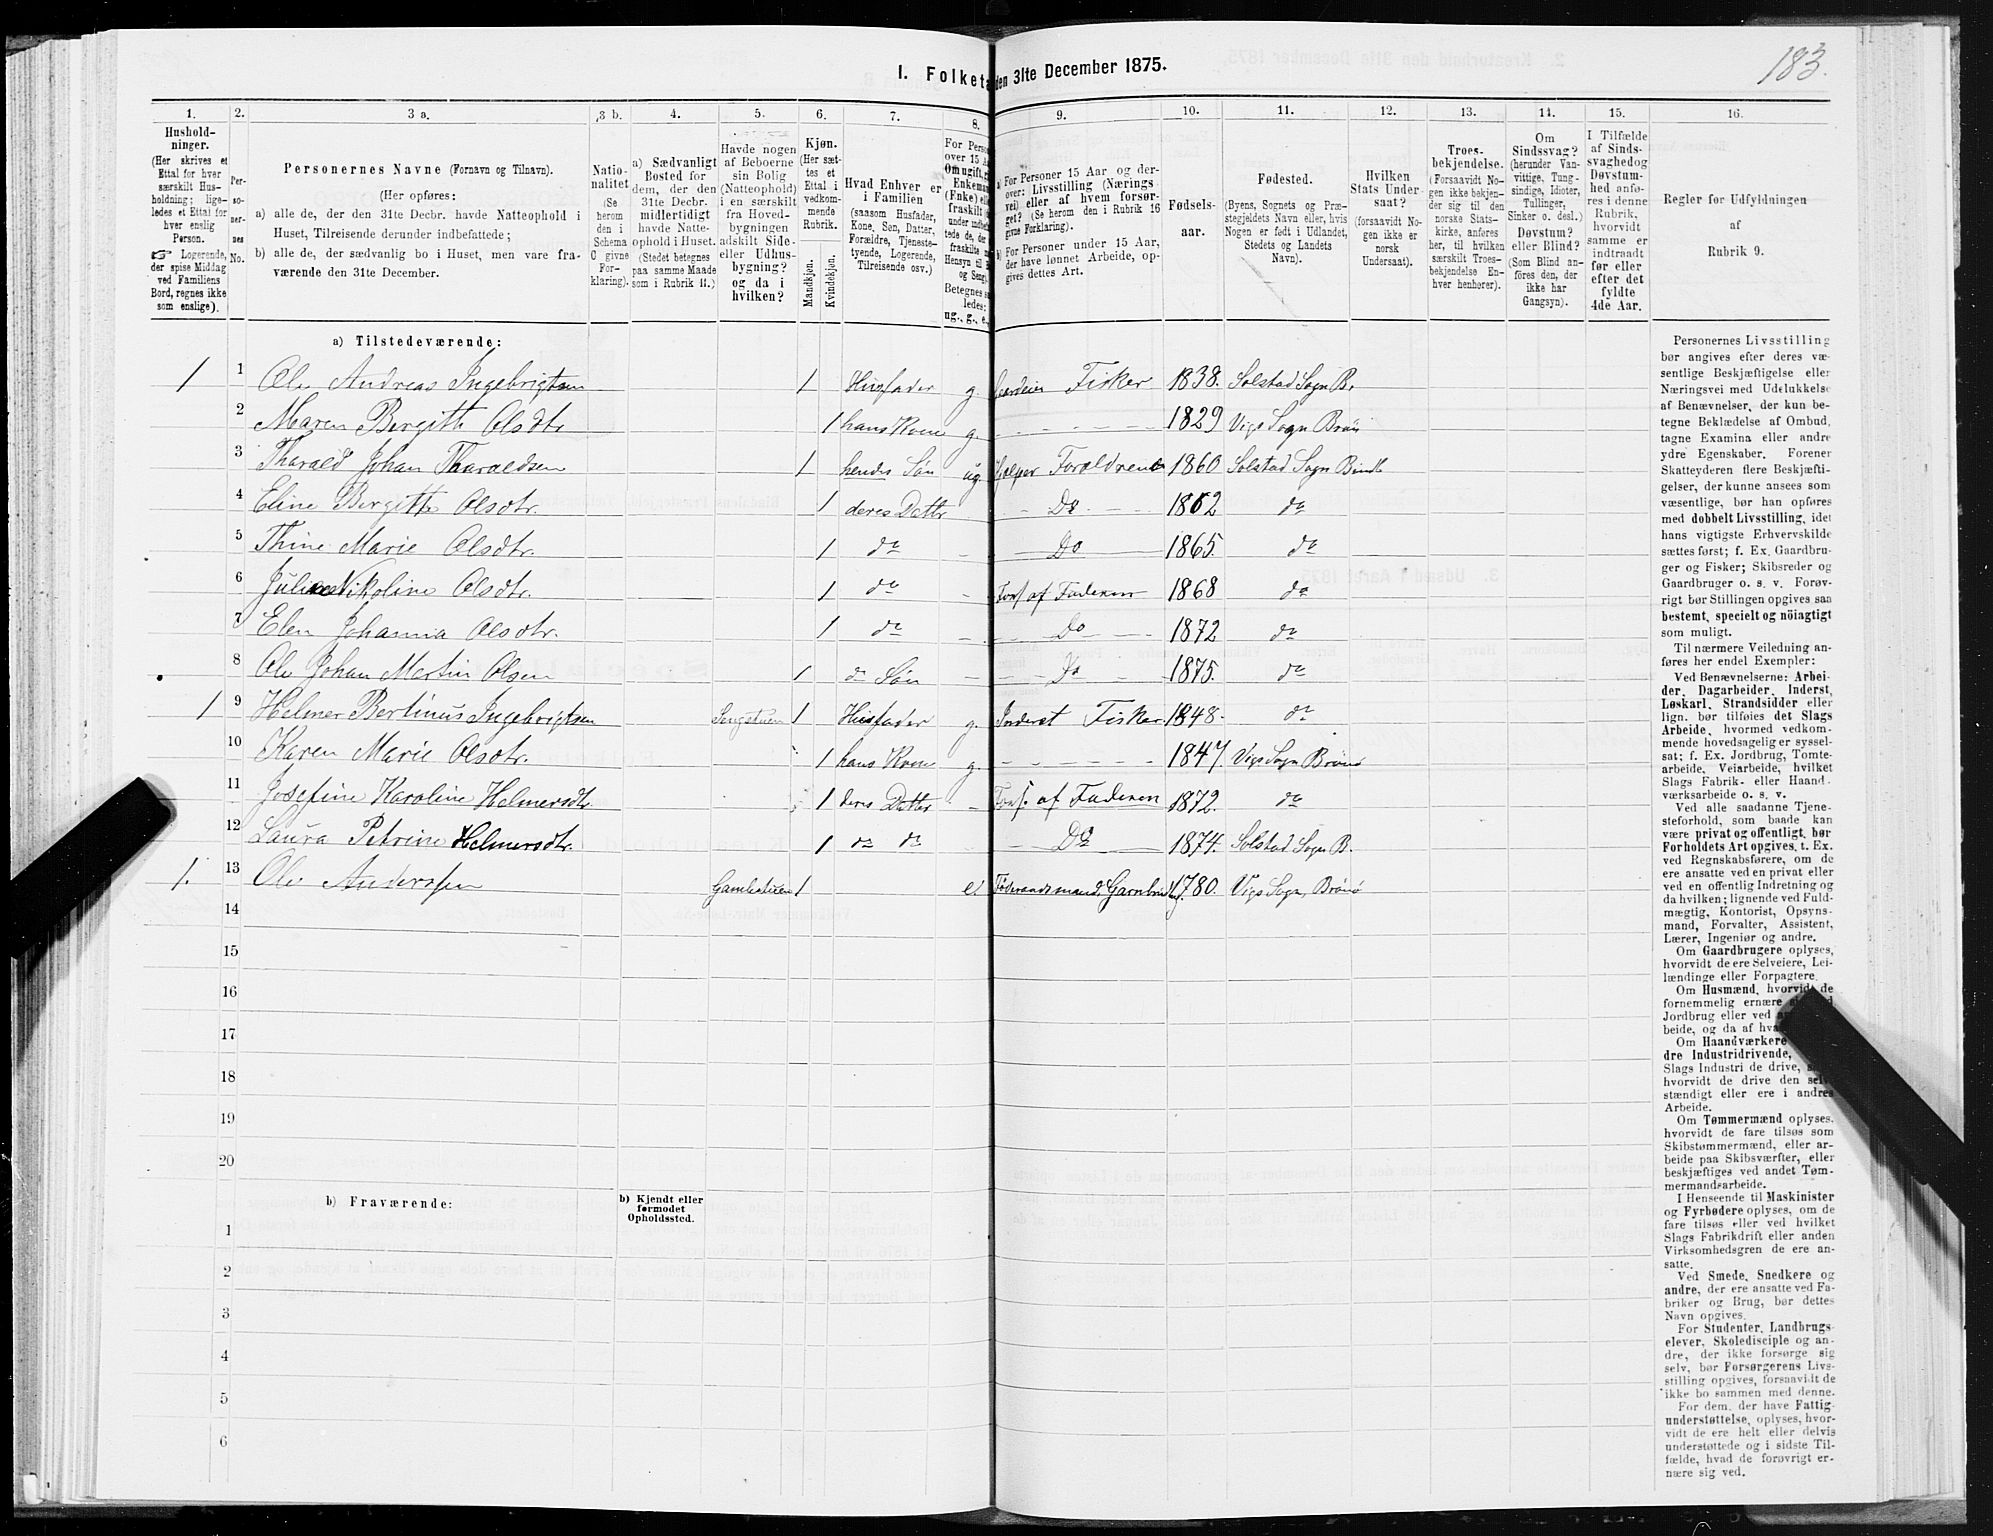 183.
I. Folketa den 31te December 1875.
1. 2. 3 a. 3 b. 4. 5. 6. 7. 8. 9. 10. 11. 12. 13. 14. 15. 16.
Hushold-
ninger.
(Her skrives et
Ettal for hver
særskilt Hus-
holdning; lige-
ledes et Ettal for
hver enslig
Person.
☞ Logerende,
der spise Middag
ved Familiens
Bord, regnes ikke
som enslige).
Per-
so-
ner-
nes
No.
Personernes Navne (Fornavn og Tilnavn).
(Her opføres:
a) alle de, der den 31te Decbr. havde Natteophold i
Huset, Tilreisende derunder indbefattede;
b) alle de, der sædvanlig bo i Huset, men vare fra-
værende den 31te December.
Natio-
nalitet
(Se
herom
den i
Schema
C givne
For-
klaring).
a) Sædvanligt
Bosted for
dem, der den
31te Decbr.
midlertidigt
havde Natte-
ophold i Huset.
(Stedet betegnes
paa samme Maade
som i Rubrik 11.)
Havde nogen
af Beboerne
sin Bolig
(Natteophold)
i en særskilt
fra Hoved-
bygningen
adskilt Side-
eller Udhus-
bygning?
og da i
hvilken?
Kjøn.
(Her sæt-
tes et
Ettal i
vedkom-
mende
Rubrik.
Mandkjøn.
Kvindekjøn.
Hvad Enhver er
i Familien
(saasom Husfader,
Kone, Søn, Datter,
Forældre, Tjeneste-
tyende, Logerende,
Tilreisende osv.)
For Person
over 15 A
Om ugift, g
Enkeman
(Enke) el
fraskilt
under indbe
tede de, d
fraskilte
Hensyn til B
og Seng).
Betegnes s
ledes:
ug., g., e.,
a) For Personer 15 Aar og der-
over: Livsstilling (Nærings-
vei) eller af hvem forsør-
get? (Se herom den i Rubrik 16
givne Forklaring).
b) For Personer under 15 Aar,
der have lønnet Arbeide, op-
gives dettes Art.
Fødsels-
aar.
Fødested.
(Byens, Sognets og Præ-
stegjeldets Navn eller, hvis
Nogen er født i Udlandet,
Stedets og Landets
Navn).
Hvilken
Stats Under-
saat?
(forsaavidt No-
gen ikke er
norsk
Undersaat).
Troes-
bekjendelse.
(Forsaavidt No-
gen ikke bekjen-
der sig til den
norske Stats-
kirke, anføres
her, til hvilken
særskilt Troes-
bekjendelse En-
hver henhører).
Om
Sindssvag?
(herunder Van-
vittige, Tung-
sindige, Idioter,
Tullinger,
Sinker o. desl.)
Døvstum?
eller Blind?
(Som Blind an-
føres den, der
ikke har
Gangsyn).
I Tilfælde
af Sinds-
svaghed og
Døvstum-
hed anfø-
res i denne
Rubrik,
hvorvidt
samme er
indtraadt
før eller
efter det
fyldte
4de Aar.
Regler for Udfyldningen
af
Rubrik 9.
a) Tilstedeværende:
1 1 Ole Andreas Ingebrigtsen 1 Husfader g. Gaardeier Fisker 1838. Solstad Sogn B.
2 Maren Bergitte Olsdtr 1 hans Kone g. - - - - - 1829 Vigs Sogn Brøn
3 Tharald Johan Tharaldsen 1 hendes Søn ug. Hjelper Forældrene 1860 Solstad Sogn Bindl
4 Eline Bergitte Olsdtr. 1 deres Datter - - Do - 1862 do
5 Thine Marie Olsdtr. 1 do - Do 1865. do
6 Juline Nikoline Olsdtr. 1 do - Fors. af Faderen 1868 do
7 Elen Johanna Olsdtr. 1 do - - Do - 1872 do
8 Ole Johan Martin Olsen 1 do Søn - - Do 1875. do
1 9 Helmer Bertinus Ingebrigtsen 1 Husfader g. Inderst Fisker 1848. do
10 Karen Marie Olsdtr. 1 hans Kone g. - - - - - 1847. Vigs Sogn Brønø
11 Josefine Karoline Helmersdtr. 1 deres Datter - Fors. af Faderen 1872. do
12 Laura Petrine Helmersdtr. 1 do do - Do 1874. Solstad Sogn B.
1. 13 Ole Anderssen 1 e Føderaadsmand, 1780. Vigs Sogn, Brønø
14
15
16
17
18
19
20
b) Fraværende:
b) Kjendt eller
formodet
Opholdssted.
1
2
3
4
5
6
Personernes Livsstilling
bør angives efter deres væ-
sentlige Beskjæftigelse eller
Næringsvei med Udelukkelse
af Benævnelser, der kun be-
tegne Beklædelse af Ombud,
tagne Examina eller andre
ydre Egenskaber. Forener
Skatteyderen flere Beskjæfti-
gelser, der kunne ansees som
væsentlige, bør han opføres
med dobbelt Livsstilling, idet
hans vigtigste Erhvervskilde
sættes først; f. Ex. Gaardbru-
ger og Fisker; Skibsreder og
Gaardbruger o. s. v. Forøv-
rigt bør Stillingen opgives saa
bestemt, specielt og nöiagtigt
som muligt.
Til nærmere Veiledning an-
føres her endel Exempler:
Ved Benævnelserne: Arbei-
der, Dagarbeider, Inderst,
Løskarl, Strandsidder eller
lign. bør tilføies det Slags
Arbeide, hvormed vedkom-
mende hovedsagelig er syssel-
sat; f. Ex. Jordbrug, Tomte-
arbeide, Veiarbeide, hvilket
Slags Fabrik- eller Haand-
værksarbeide o. s. v.
Ved alle saadanne Tjene-
steforhold, som baade kan
være privat og offentligt, bør
Forholdets Art opgives, t. Ex.
ved Regnskabsførere, om de
ere ansatte ved en privat eller
ved en offentlig Indretning og
da hvilken; lignende ved Fuld-
mægtig, Kontorist, Opsyns-
mand, Forvalter, Assistent,
Lærer, Ingeniør og andre.
Om Gaardbrugere oplyses,
hvorvidt de ere Selveiere, Lei-
lændinge eller Forpagtere.
Om Husmænd, hvorvidt de
fornemmelig ernære s d
Jordbrug eller ved a
beide, og da af hva
Om Haandværkere
dre Industridrivende,
Slags Industri de drive,
hvorvidt de drive den selv
stændigt eller ere i andres
Arbeide.
Om Tømmermænd oplyses,
hvorvidt de fare tilsøs som
Skibstømmermænd, eller ar-
beide paa Skibsværfter, eller
beskjæftiges ved andet Tøm-
mermandsarbeide.
I Henseende til Maskinister
og Fyrbødere oplyses, om de
fare tilsøs eller ved hvilket
Slags Fabrikdrift eller anden
Virksomhedsgren de ere an-
satte.
Ved Smede, Snedkere og
andre, der ere ansatte ved Fa-
briker og Brug, bør dettes
Navn opgives.
For Studenter, Landbrugs-
elever, Skoledisciple og an-
dre, der ikke forsørge sig
selv, bør Forsørgerens Livs-
stilling opgives, forsaavidt de
ikke bo sammen med denne.
For dem, der have Fattig-
understøttelse, oplyses, hvor-
vidt de ere helt eller delvis
understøttede og i sidste Til-
fælde, hvad de forøvrigt er-
nære sig ved.